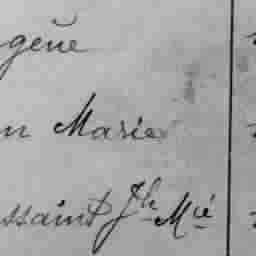 gène
n Marie
ssaint Jh Mié